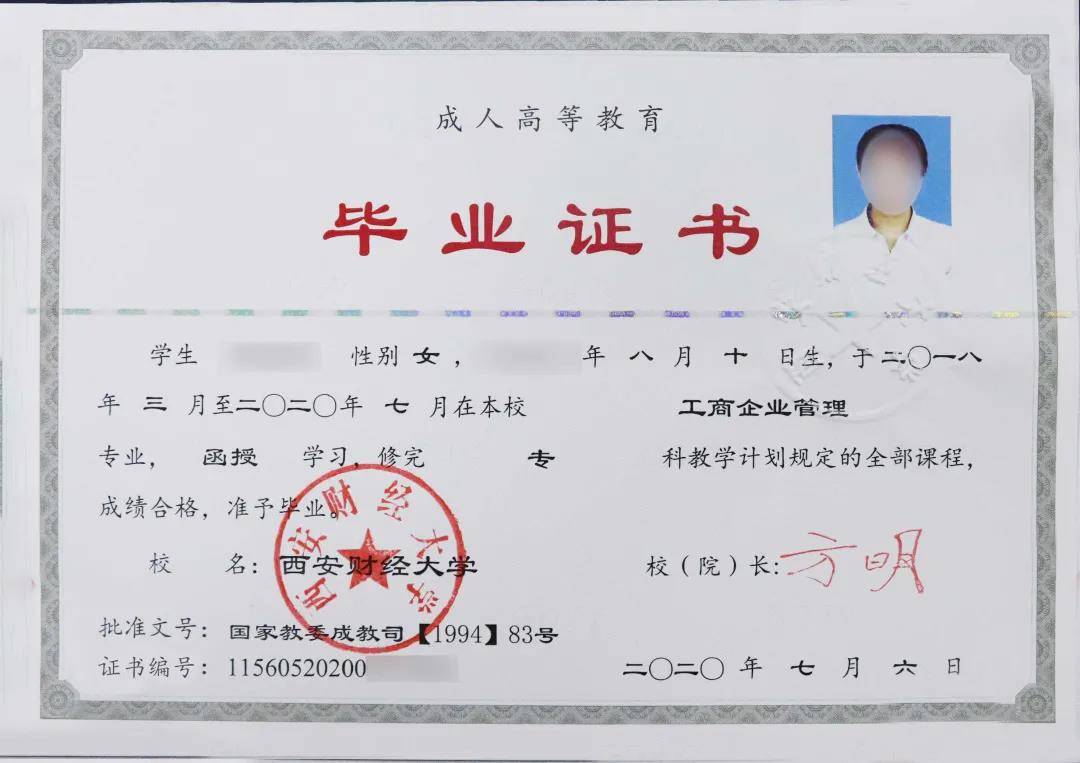 成人高等教育
毕业证书
学生 性别 女， 年 八 月 十 日生，于二〇一八
年 三 月至二〇二〇年 七 月在本校 工商企业管理
专业， 函授 学习，修完 专 科教学计划规定的全部课程，
成绩合格，准予毕业。
西安财经大学
校 名：西安财经大学 校（院）长：方明
批准文号：国家教委成教司【1994】83号
证书编号：11560520200 二〇二〇 年 七 月 六 日